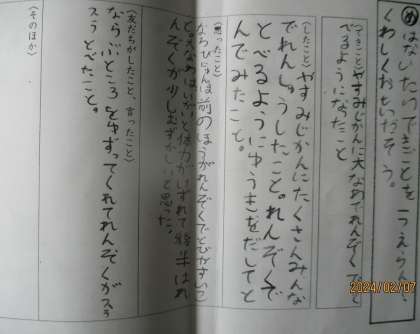 はなしたいできごとをえらんで、
くわしくおもいだそう。
〈できごと〉やすみじかんに大なわでれんぞくで
べるようになったこと
〈したこと〉やすみじかんにたくさんみんな
でれんしゅうしたこと。れんぞくで
とべるようにゆうきをだしてと
んでみたこと。
〈思ったこと〉
ならびじゅんは前のほうがれんぞくでとびやすいこ
と。大なわはいがいと体力がいずれて
んぞくが少しむずかしいと思った。
〈友だちがしたこと、言ったこと〉
ならぶところをゆずってくれてれんぞくが
とべたこと。
〈そのほか〉
2024/02/07